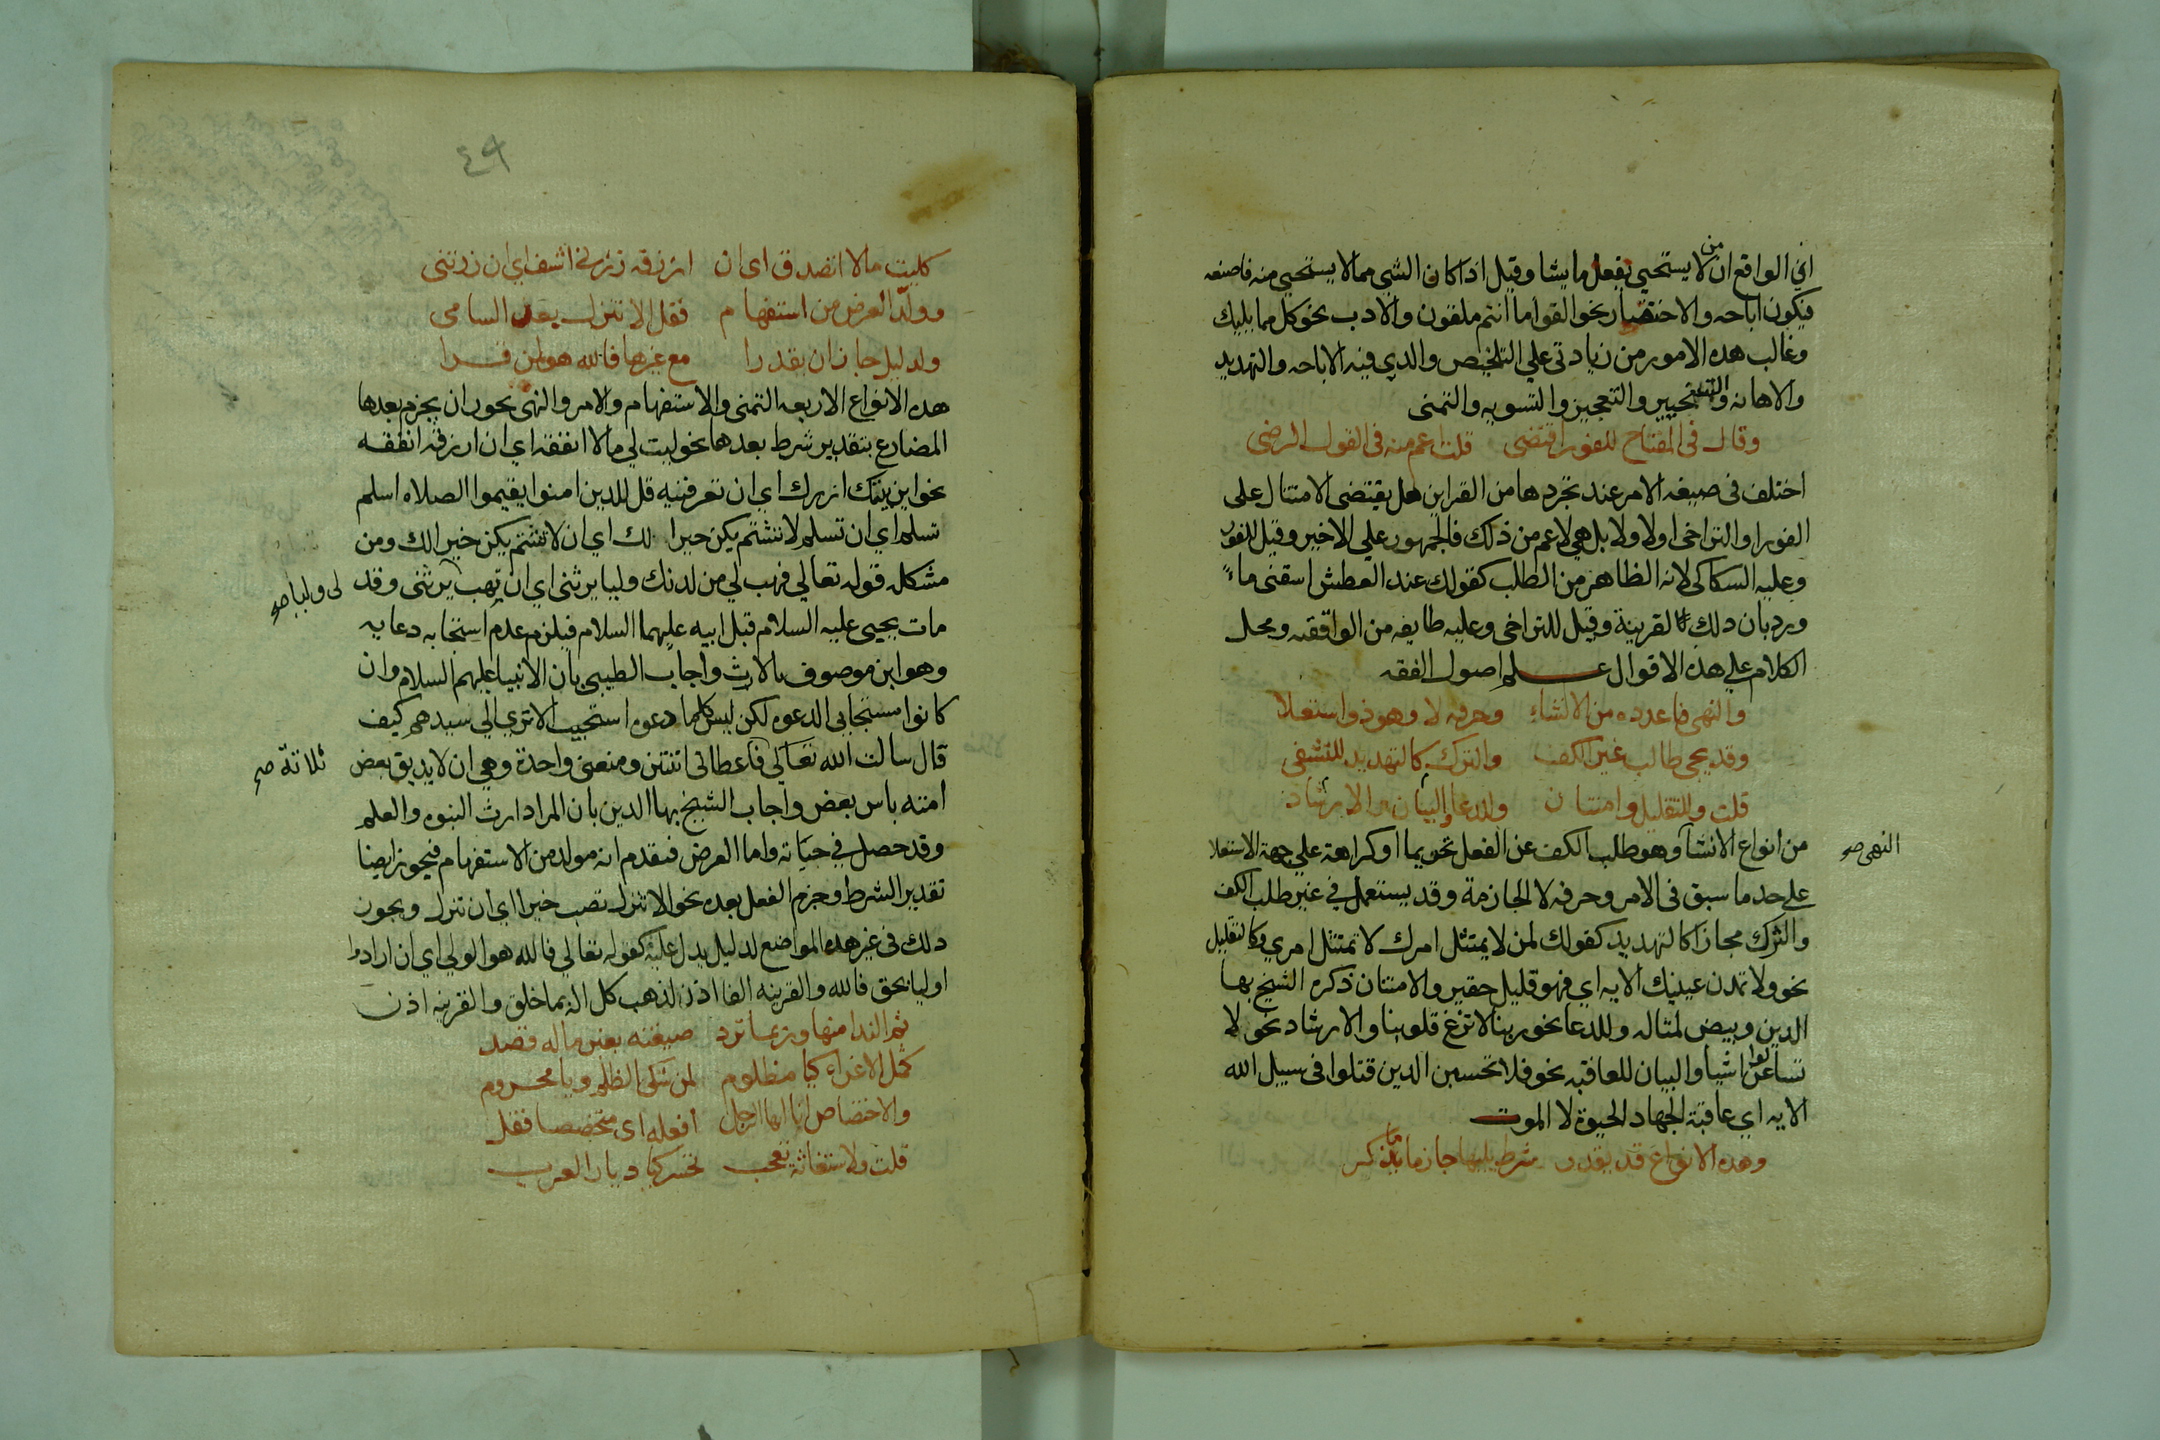 اي الواقع ان من لا يستحيي يفعل ما يشا وقيل اذا كان الشي مما لا يستحيي منه فاصنعه
فيكون اباحه والاختصار نحو القوا ما انتم ملقون والادب نحو كل مما يليك
وغالب هذه الامور من زيادتي علي التلخيص والذي فيه الاباحه والتهديد
والاهانه والتعجيز والتسويه والتمني
وقال في المفتاح للفور اقتضي قلت اعم منه في القول الرضي
اختلف في صيغه الامر عند تجردها من القراين هل يقتضي الامتثال علي
الفور او التراخي اولا ولا بل هي لاعم من ذلك فالجمهور علي الاخير وقيل للفور
وعليه السكاكي لانه الظاهر من الطلب كقولك عند العطش اسقني ماء
ورد بان ذلك للقرينة وقيل للتراخي وعليه طايفه من الواقفيه ومحل
الكلام علي هذه الاقوال علم اصول الفقه
والنهي فاعدده من الانشاء وحرفه لا وهو ذو استعلا
وقد يجي طالب غير الكف والترك كالتهديد للتشفي
قلت وللتقليل وامتنان وللدعا والبيان والارشاد
من انواع الانشا وهو طلب الكف عن الفعل تحريما او كراهة علي جهة الاستعلا
النهي صح
علي حد ما سبق في الامر وحرفه لا الجازمة وقد يستعمل في غير طلب الكف
والترك مجازا كالتهديد كقولك لمن لا يمتثل امرك لا تمتثل امري وكالتقليل
نحو ولا تمدن عينيك الايه اي فهو قليل حقير والامتنان ذكره الشيخ بها
الدين وبيض لمثاله وللدعا نحو ربنا لا تزغ قلوبنا والارشاد نحو لا
تسالوا عن اشيا والبيان للعاقبه نحو فلا تحسبن الذين قتلوا في سبيل الله
الايه اي عاقبة الجهاد الحيوة لا الموت
وهذه الانواع قد يقدر شرط يليها جازما ما يذكر
٤٩
كليت مالا اتصدق اي ان ارزقه زرني اشف اي ان زرتني
وولد العرض من استفهام فقل الا تنزل يعد السامي
ولدليل جاز ان يقدرا مع غيرها فالله هو لمن قرا
هذه الانواع الاربعه التمني والاستفهام والامر والنهي يجوز ان يجزم بعدها
المضارع بتقدير شرط بعدها نحو ليت لي مالا انفقه اي ان ارزقه انفقه
نحو اين بيتك ازرك اي ان تعرفنيه قل للذين امنوا يقيموا الصلاه اسلم
تسلم اي ان تسلم لا تشتم يكن خيرا لك اي ان لا تشتم يكن خيرا لك ومن
مشكله قوله تعالي فهب لي من لدنك وليا يرثني اي ان تهب يرثني وقد
لي وليا صح
مات يحيي عليه السلام قبل ابيه عليهما السلام فيلزم عدم استجابه دعايه
وهو ابن موصوف بالارث واجاب الطيبي بان الانبيا عليهم السلام وان
كانوا مستجابي الدعوه لكن ليس كلما دعوه استجيب الا تري الي سيدهم كيف
قال سالت الله تعالي فاعطاني اثنتين ومنعني واحدة وهي ان لا يذيق بعض
ثلاثة صح
امته باس بعض واجاب الشيخ بها الدين بان المراد ارث النبوه والعلم
وقد حصل في حياته واما العرض فتقدم انه مولد من الاستفهام فيجوز ايضا
تقدير الشرط وجزم الفعل بعده نحو الا تنزل تصب خيرا اي ان تنزل ويجوز
ذلك في غير هذه المواضع لدليل يدل عليه كقوله تعالي فالله هو الولي اي ان ارادوا
اوليا بحق فالله والقرينه الفا اذن لذهب كل اله بما خلق والقرينه اذن
ثم الندا منها وربما ترد صيغته بغير ماله قصد
كمثل الاغراء كيا مظلوم لمن شكي الظلم ويا محروم
والاختصاص انا ايها الرجل افعله اي متخصصا فقل
قلت ولاستغاثة تعجب تحسر كيا ديار العرب